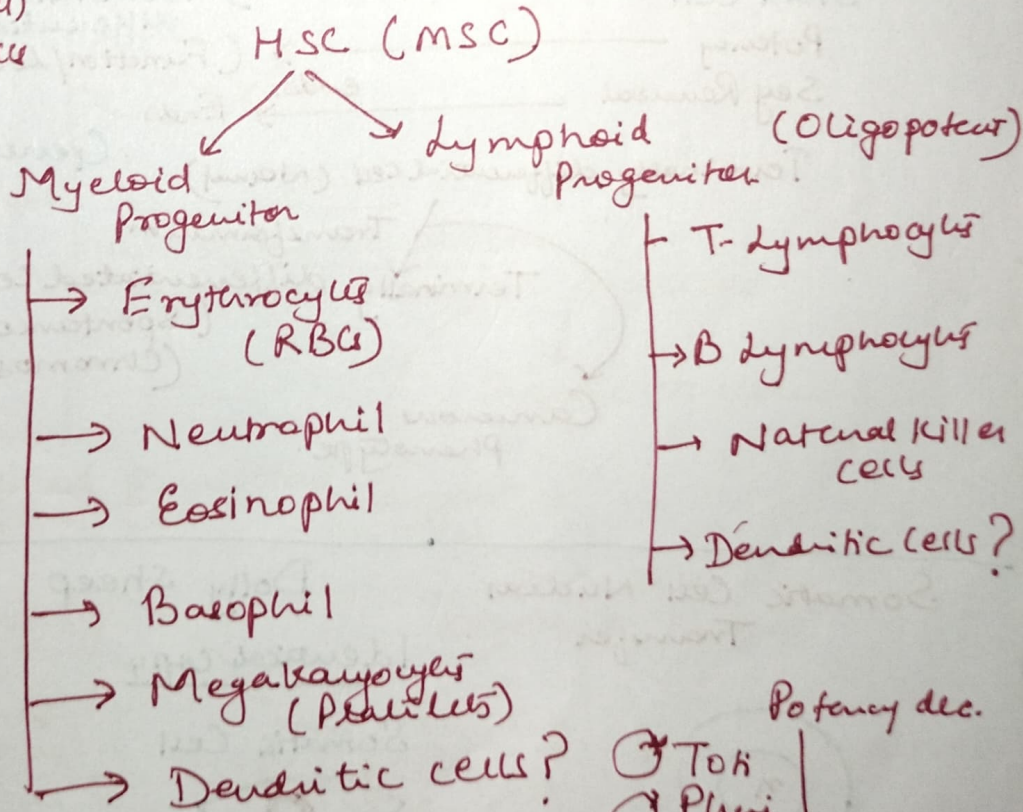 HSC (MSC)
Myeloid
Progenitor
Lymphoid
Progenitor
(Oligopotent)
Erythrocytes
(RBCs)
Neutrophil
Eosinophil
Basophil
Megakaryocytes
(Platelets)
Dendritic cells?
T-Lymphocytes
B Lymphocytes
Natural Killer
cells
Dendritic cells?
Potency dec.
Toti
Pluri